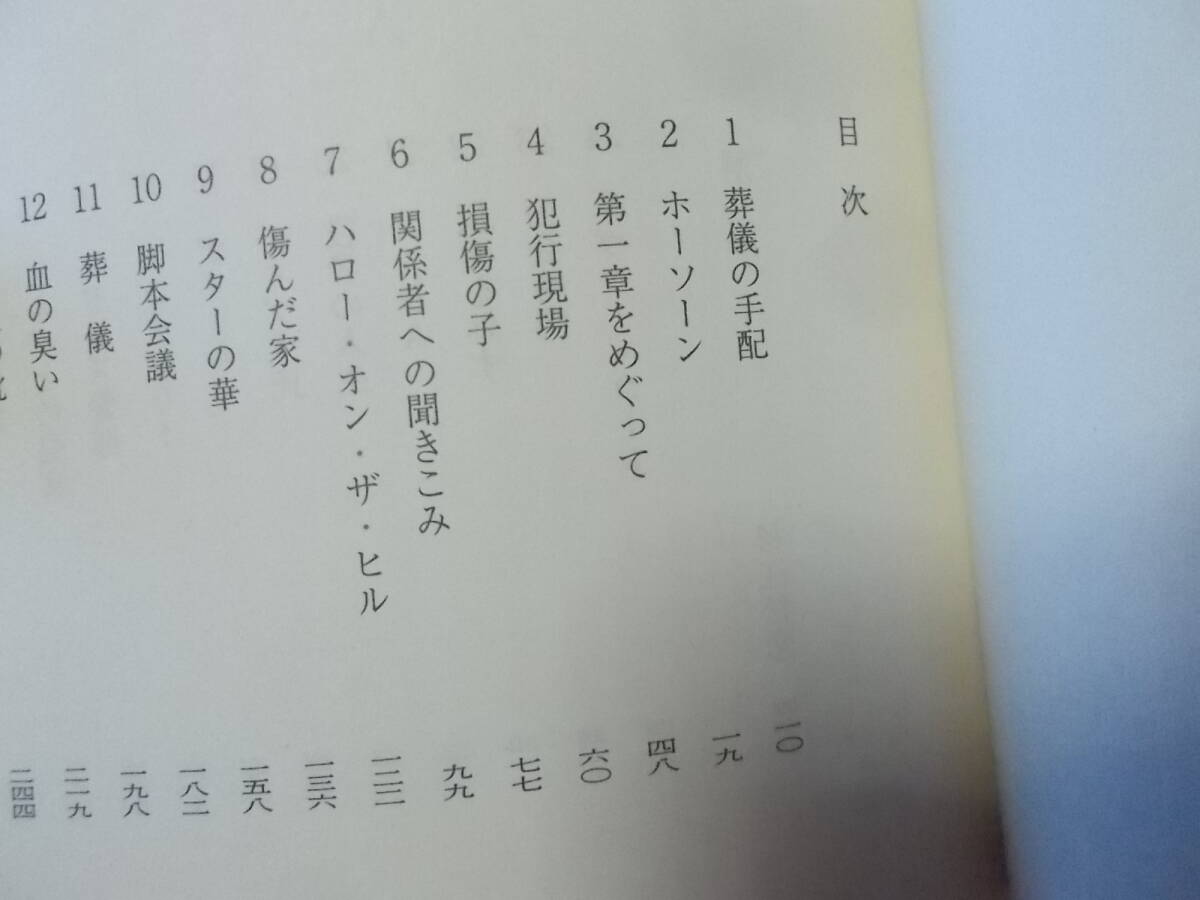 目次
1 葬儀の手配 一〇
2 ホーソーン 一九
3 第一章をめぐって 四八
4 犯行現場 六〇
5 損傷の子 七七
6 関係者への聞きこみ 九九
7 ハロー・オン・ザ・ヒル 一二二
8 傷んだ家 一三六
9 スターの華 一五八
10 脚本会議 一八二
11 葬儀 一九八
12 血の臭い 二一九
二四四